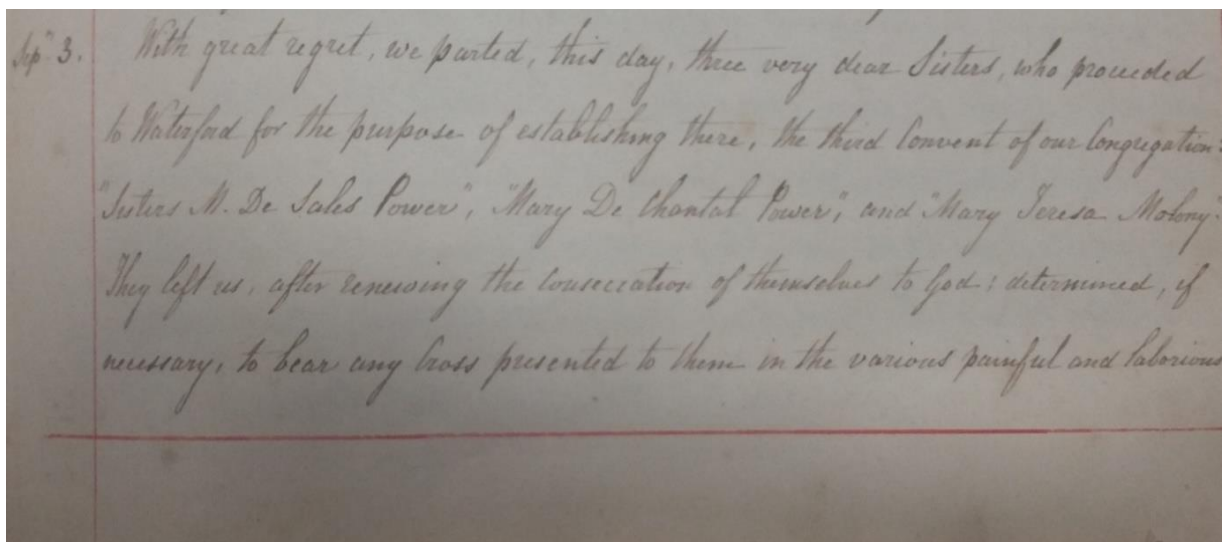 Sep.r 3. With great regret, we parted, this day, three very dear Sisters, who proceeded
to Waterford for the purpose of establishing there, the third Convent of our Congregation:
"Sisters M. De Sales Power", "Mary De Chantal Power", and "Mary Teresa Molony".
They left us, after renewing the consecration of themselves to God; determined, if
necessary, to bear any Cross presented to them in the various painful and laborious